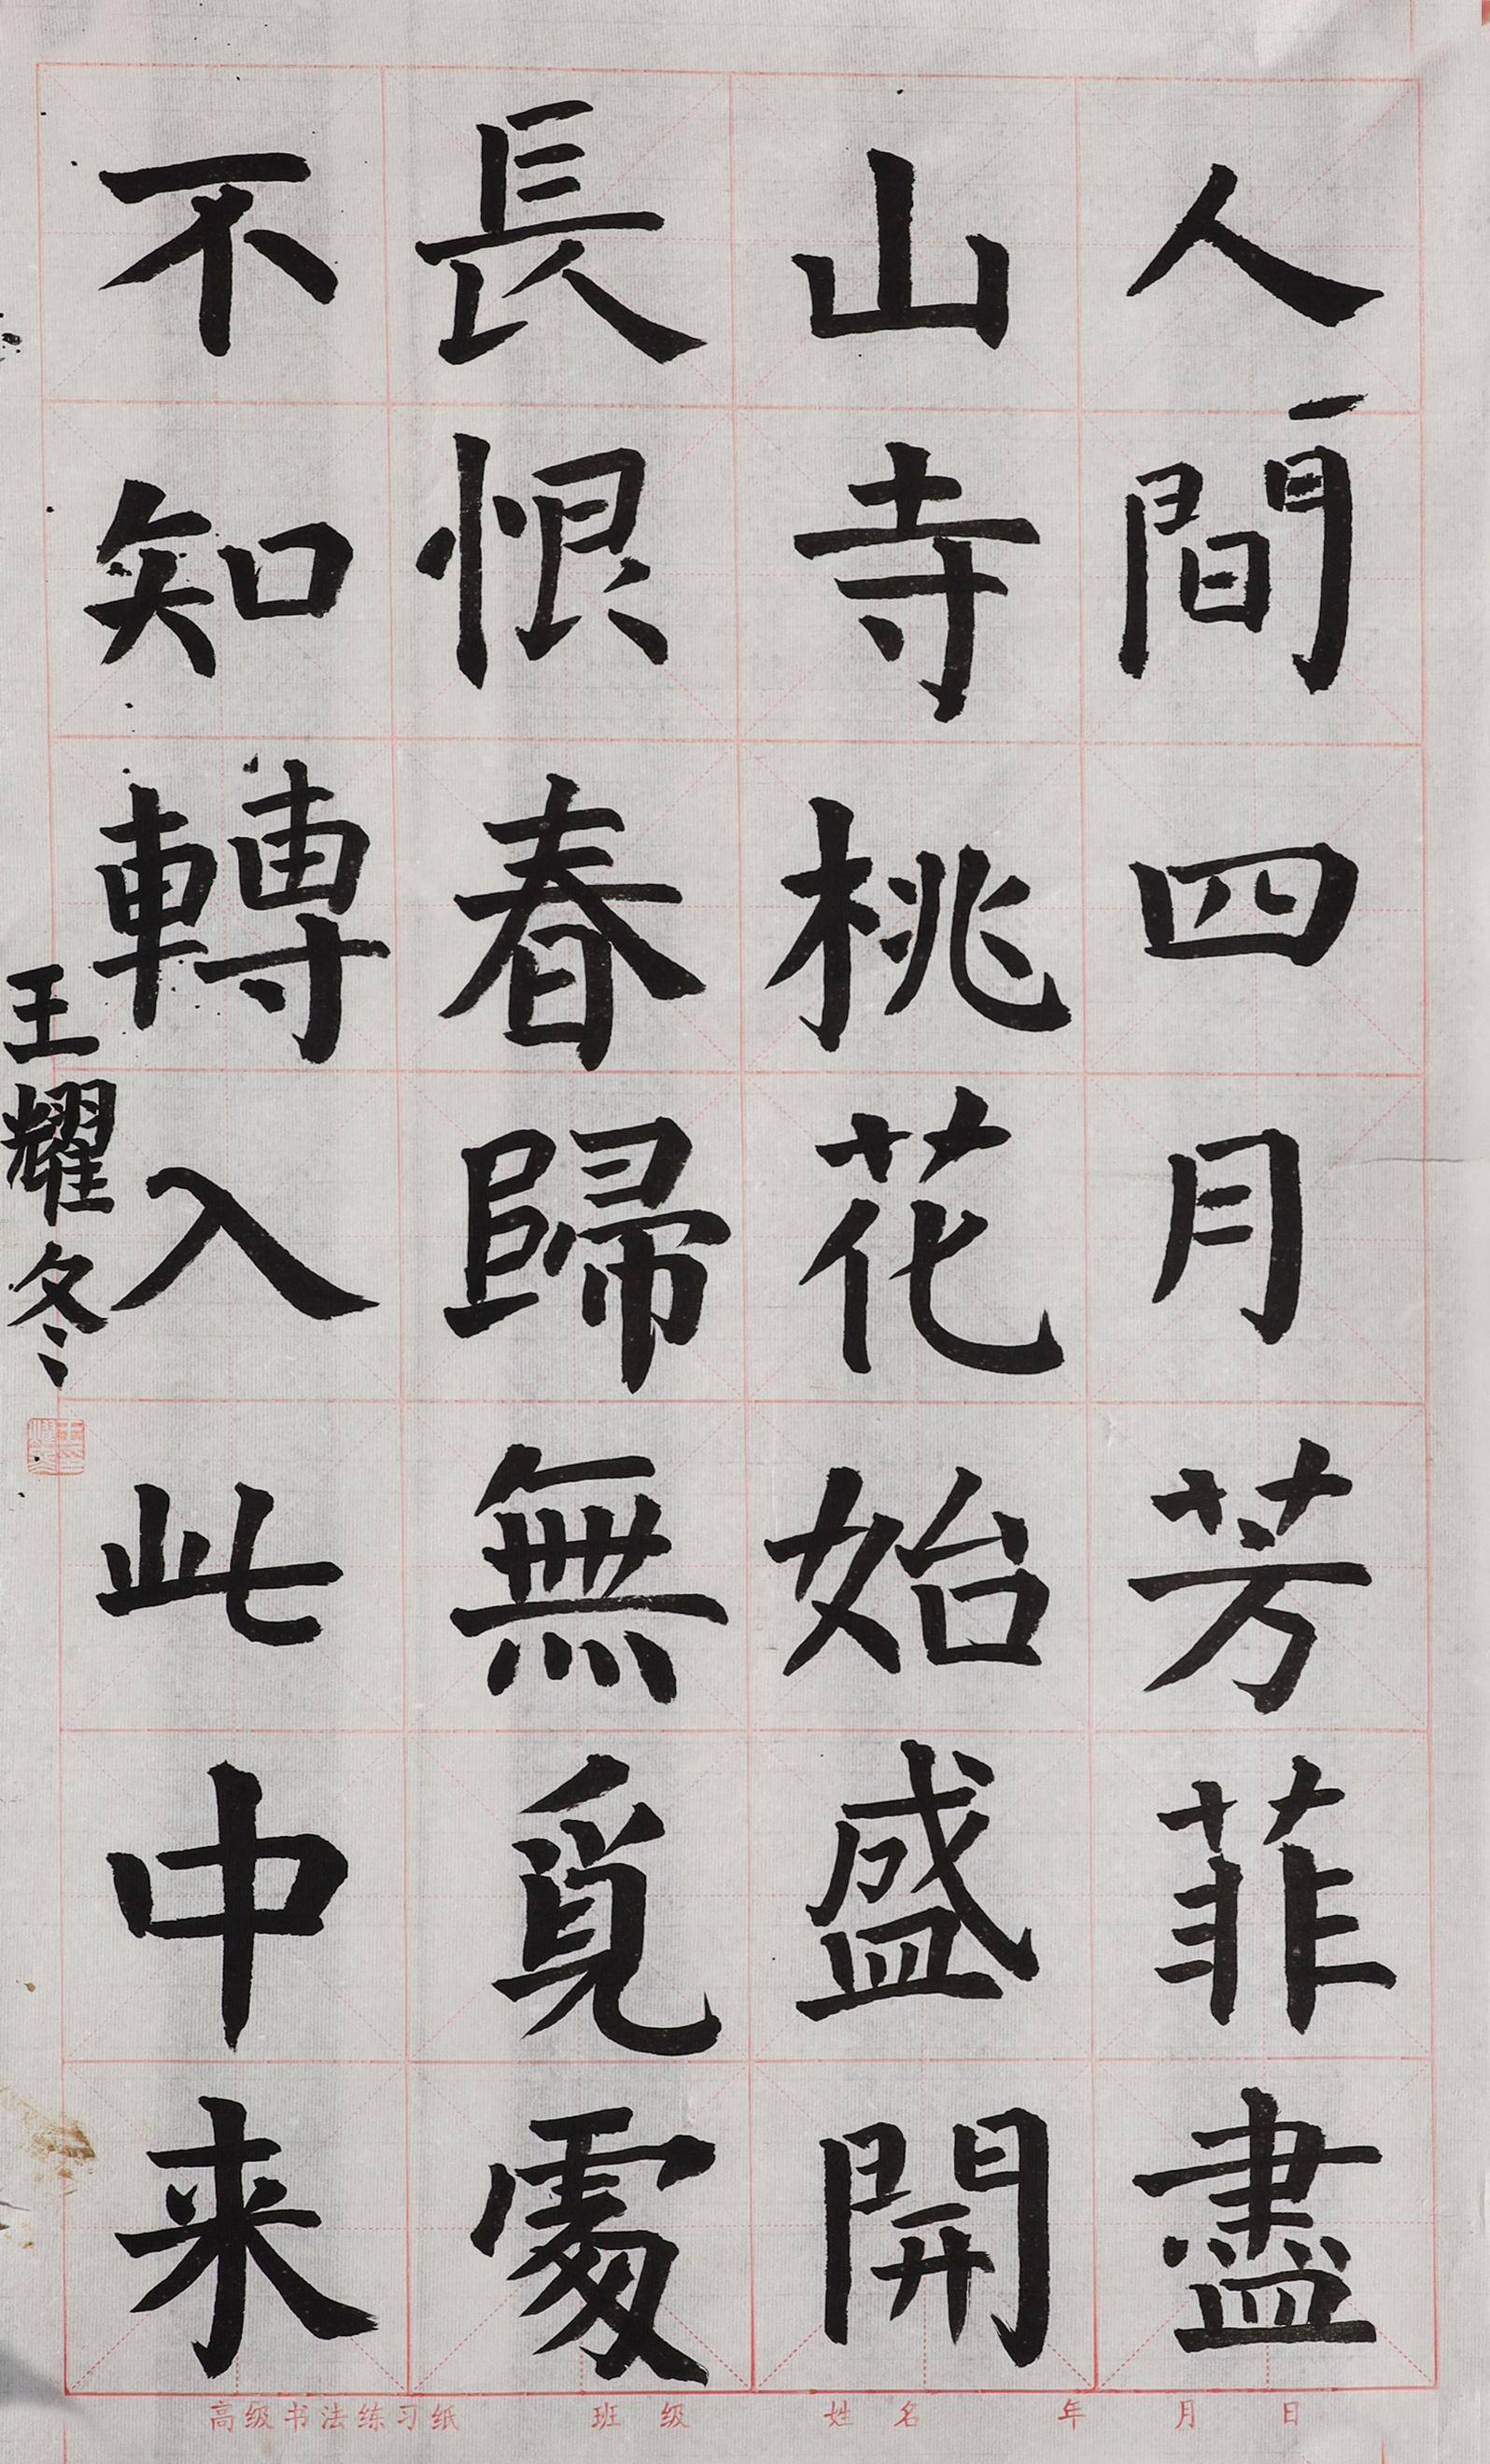 人間四月芳菲盡
山寺桃花始盛開
長恨春歸無覓處
不知轉入此中来
王耀冬
高级书法练习纸 班级 姓名 年 月 日